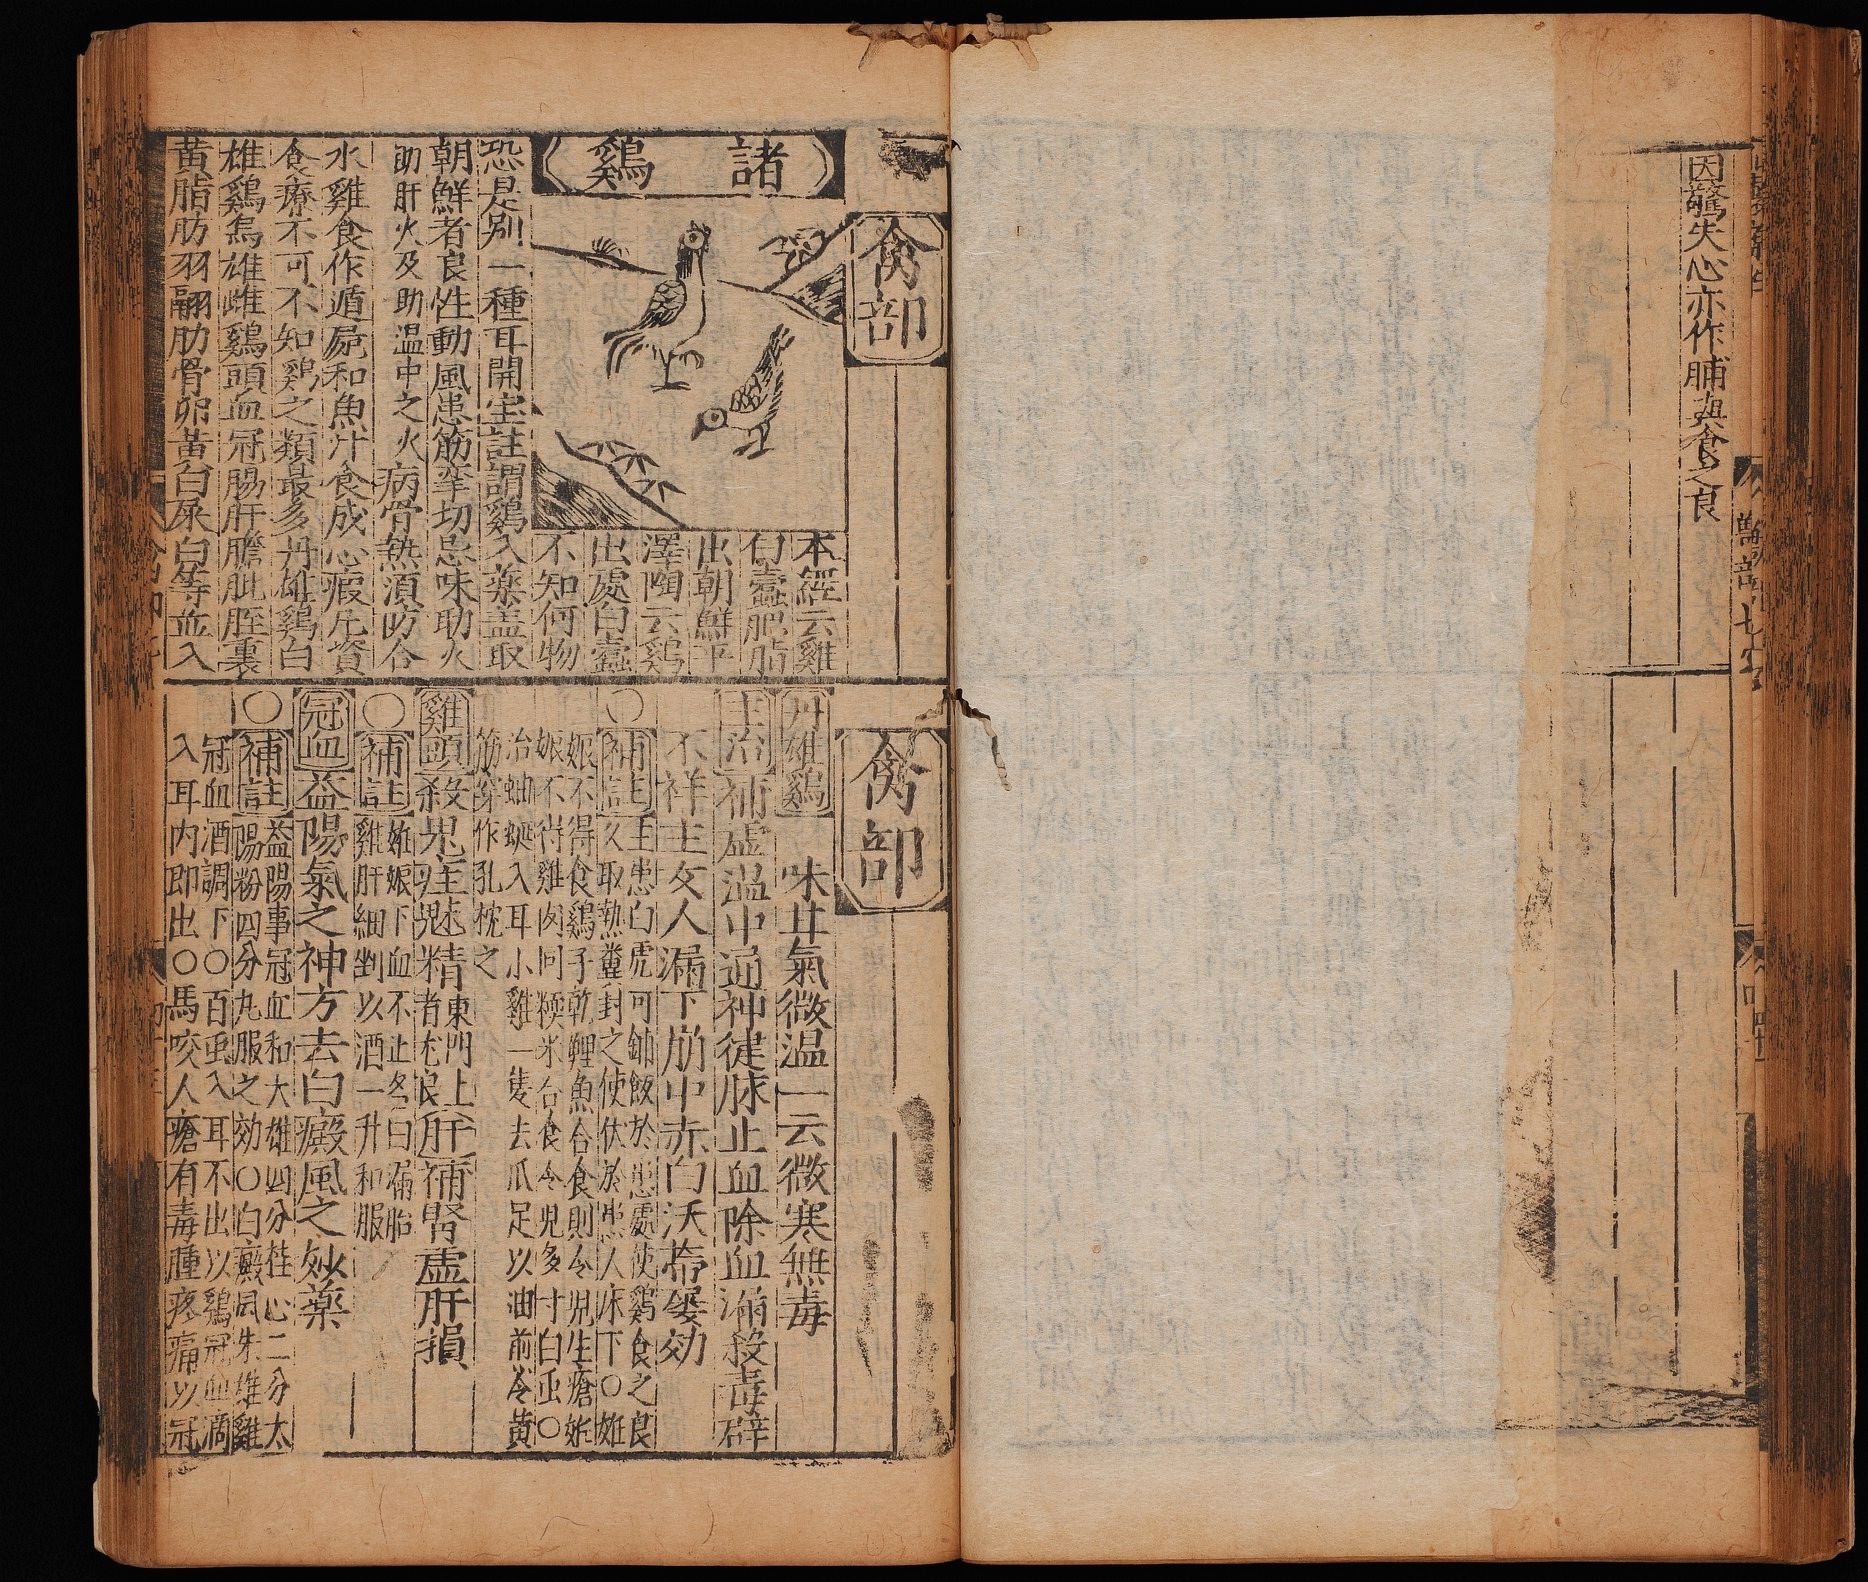 因驚失心亦作脯與食之良
獸部
禽部
諸鷄
本經云雞
白蠹肥脂
出朝鮮平
澤陶云鷄
出處白蠹
不知何物
恐是別一種耳開宝註謂鷄入藥盖取
朝鮮者良性動風患筋挛切忌味助火
助肝火及助溫中之火病骨熱須防合
水雞食作遁屍和魚汁食成心瘕凢資
食療不可不知鷄之類最多丹雄鷄白
雄鷄烏雄雌鷄頭血冠腸肝膽肶胵裏
黃脂肪羽翮肋骨卵黃白尿白等並入
禽部
丹雄鷄味甘氣微溫一云微寒無毒
主治補虛溫中通神徤脉止血除血漏殺毒辟
不祥主女人漏下崩中赤白沃蒂屡効
○補註主患白虎可鋪飯於患處使鷄食之良
又取熱糞封之使伏於患人床下○姙
娠不得食鷄子乾鯉魚合食則令児生瘡姙
娠不得雞肉同糯米合食令児多寸白虫○
治蚰蜒入耳小雞一隻去爪足以油煎令黃
筋穿作孔枕之
雞頭殺鬼主速精東門上
者尤良肝補腎虛肝損
○補註姙娠下血不止名曰漏胎
雞肝細剉以酒一升和服
冠血益陽氣之神方去白癜風之妙藥
○補註益陽事冠血和大雄四分桂心二分太
陽粉四分丸服之効○白癜風朱雄雞
冠血酒調下○百虫入耳不出以鷄冠血滴
入耳內即出○馬咬人瘡有毒腫疼痛以冠